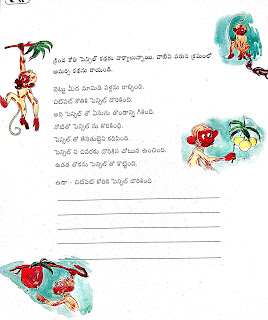 క్రింద కోతి పెన్సిల్ కథకు వాక్యాలున్నాయి. వాటిని వరుస క్రమంలో
అమర్చి కథను రాయండి.
చెట్టు మీద మామిడి పళ్లను రాల్చింది.
చిటిపట్ కోతికి పెన్సిల్ దొరికింది.
అది పెన్సిల్ తో ఏనుగు తొండాన్ని గీకింది.
నోటితో పెన్సిల్ ను కొరికింది.
పెన్సిల్ తో తేనెతుట్టెని కదిపింది.
పెన్సిల్ ని చివరకు దొరికిన చోటున ఉంచింది.
ఉడత తోకను పెన్సిల్ తో కొట్టింది.
ఉదా - చిటిపట్ కోతికి పెన్సిల్ దొరికింది.